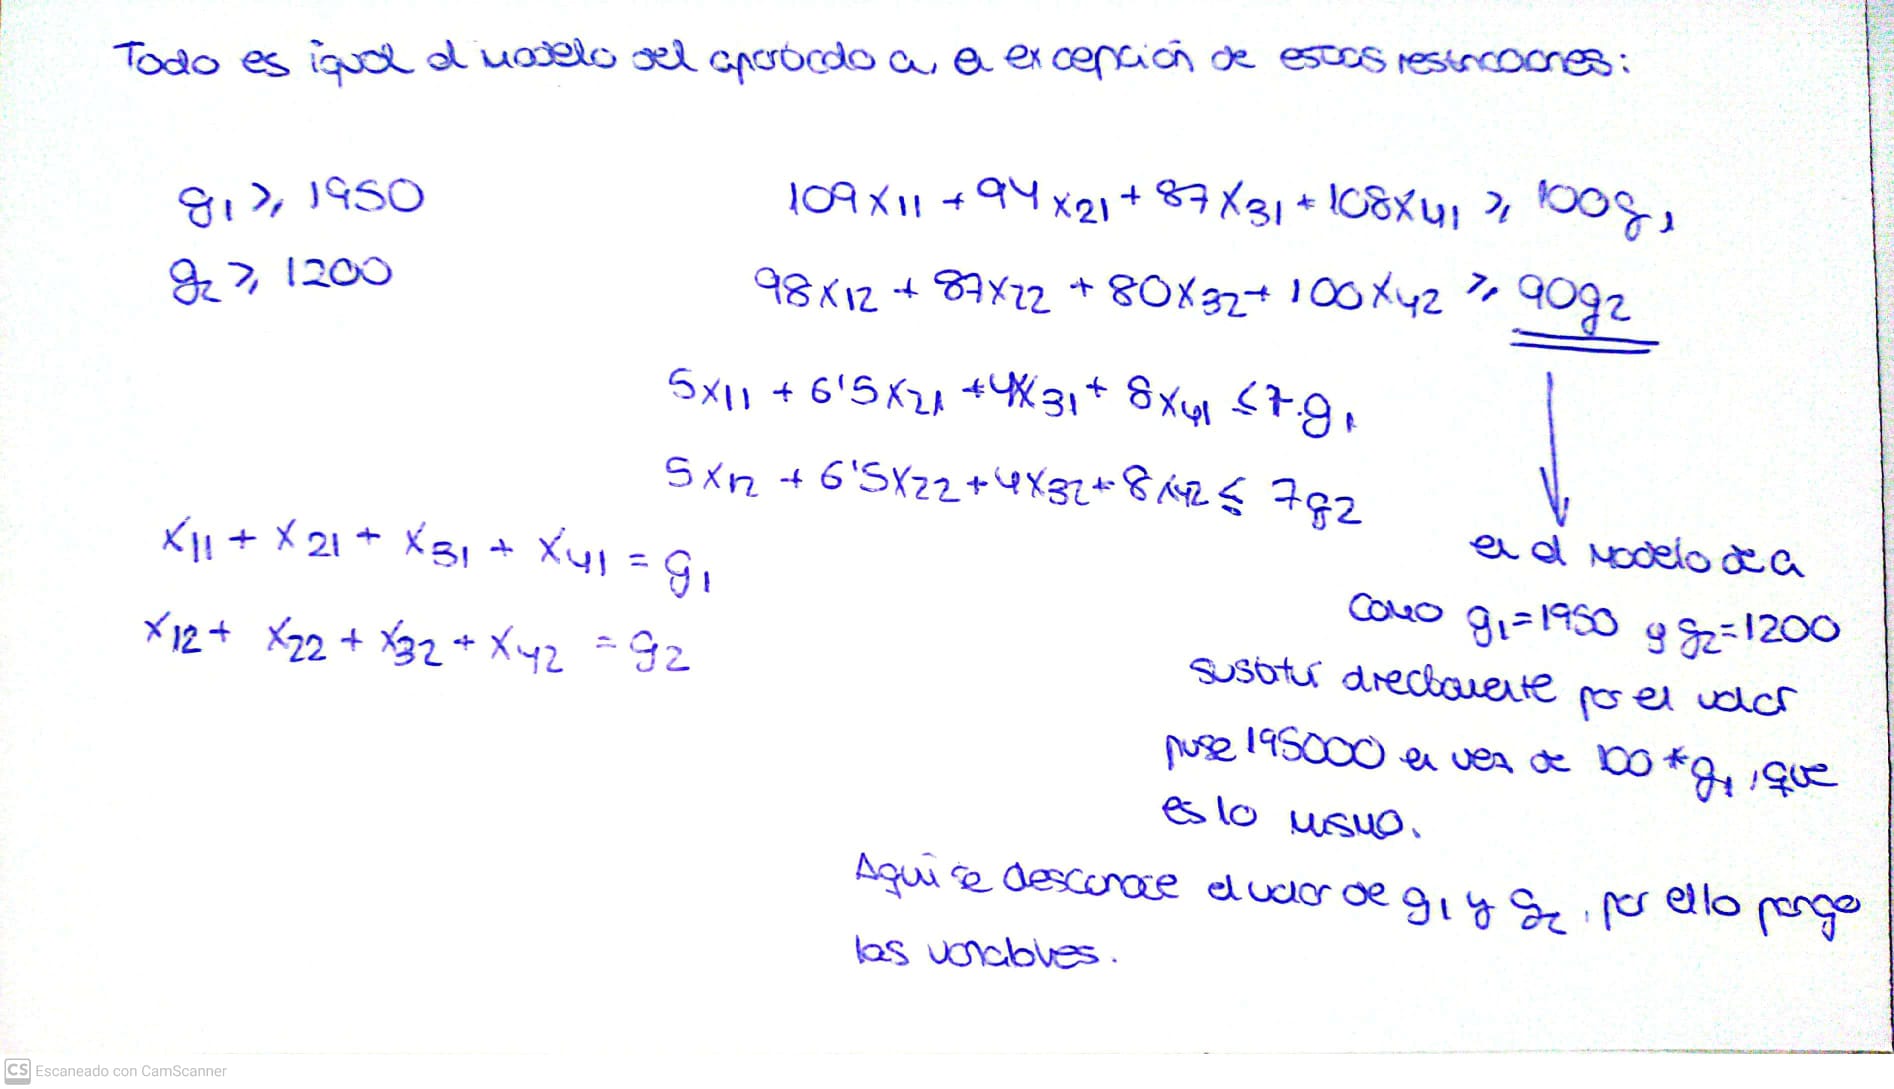 Todo es igual al modelo del apartado a, a excepción de estas restricciones:
g1 ≥ 1950
g2 ≥ 1200
109x11 + 94x21 + 87x31 + 108x41 ≥ 100g1
98x12 + 87x22 + 80x32 + 100x42 ≥ 90g2
5x11 + 6'5x21 + 4x31 + 8x41 ≤ 7·g1
5x12 + 6'5x22 + 4x32 + 8x42 ≤ 7g2
x11 + x21 + x31 + x41 = g1
x12 + x22 + x32 + x42 = g2
en el modelo de a
como g1=1950 y g2=1200
sustituí directamente por el valor
puse 195000 en vez de 100*g1, que
es lo mismo.
Aquí se desconoce el valor de g1 y g2, por ello pongo
las variables.
CS Escaneado con CamScanner